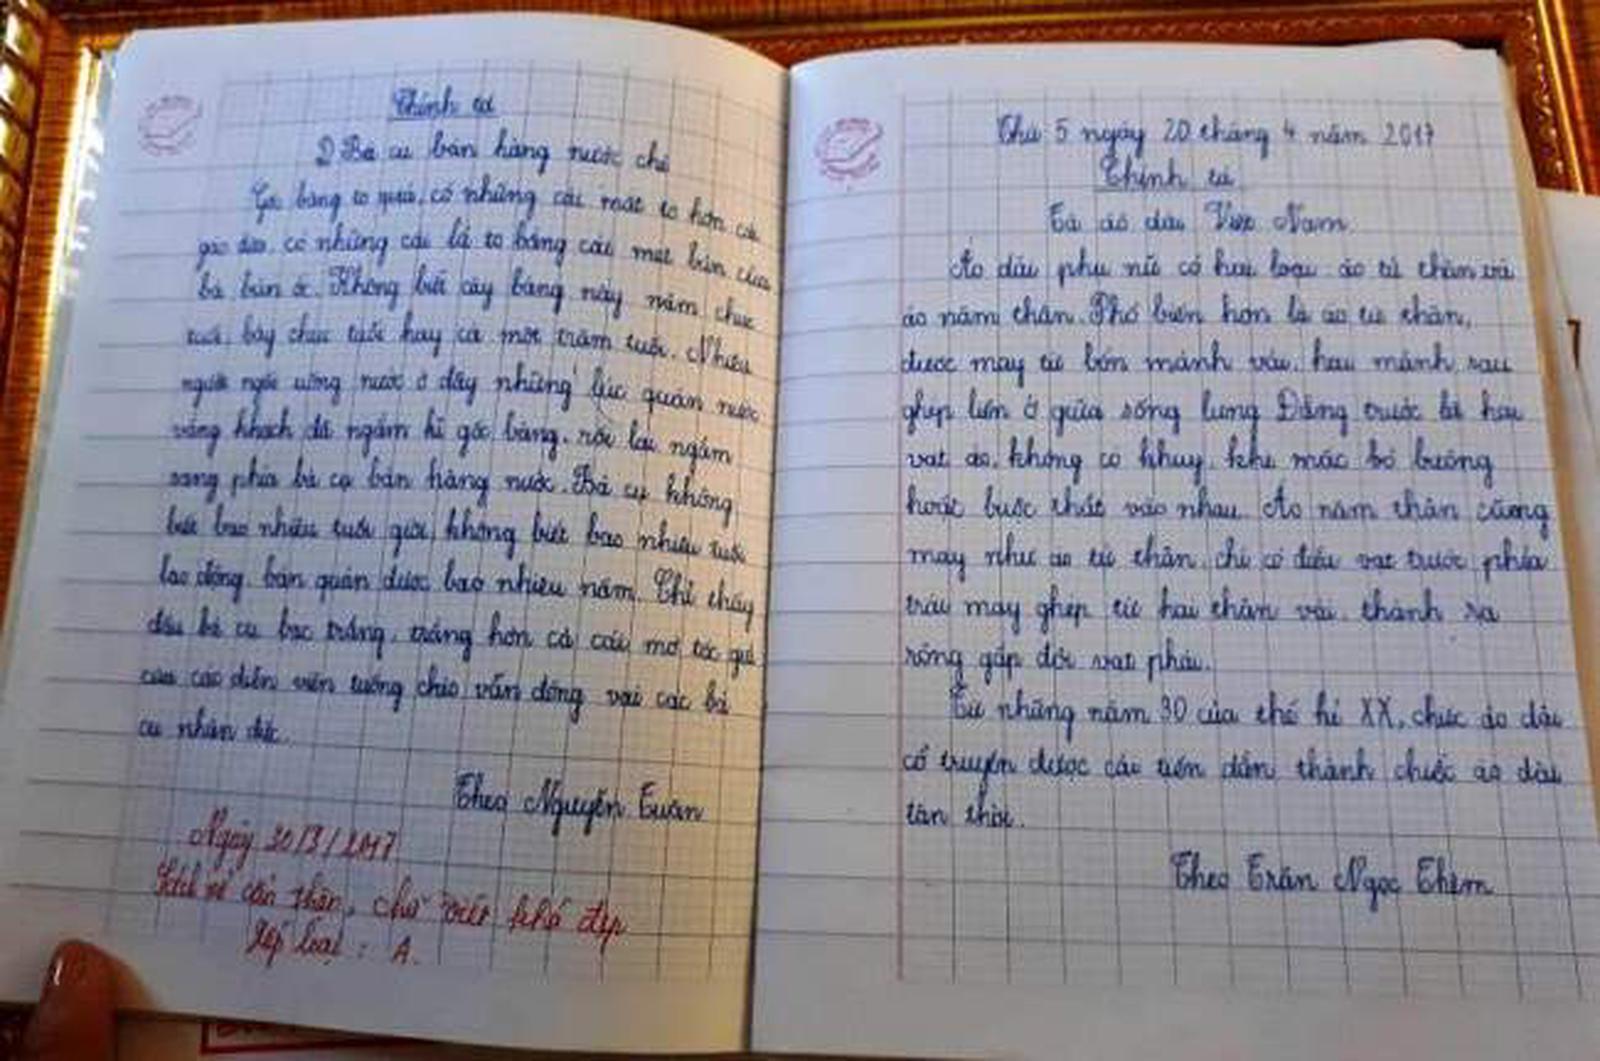 Chính tả
Bà cụ bán hàng nước chè
Gốc bàng to quá, có những cái mắt to hơn cái
gáo dừa, có những cái lá to bằng cái mẹt bún của
bà bún ốc. Không biết cây bàng này năm chục
tuổi, bảy chục tuổi hay cả một trăm tuổi. Nhiều
người ngồi uống nước ở đây những lúc quán nước
vắng khách đã ngắm kĩ gốc bàng, rồi lại ngắm
sang phía bà cụ bán hàng nước. Bà cụ không
biết bao nhiêu tuổi giời, không biết bao nhiêu tuổi
lao động bán quán được bao nhiêu năm. Chỉ thấy
đầu bà cụ bạc trắng, trắng hơn cả cái mớ tóc giả
của các diễn viên tuồng chèo vẫn đóng vai các bà
cụ nhân đức.
Theo Nguyễn Tuân
Ngày 30/3/2017
cẩn thận, chữ viết khá đẹp
Xếp loại: A.
Thứ 5 ngày 20 tháng 4 năm 2017
Chính tả
Tà áo dài Việt Nam.
Áo dài phụ nữ có hai loại: áo tứ thân và
áo năm thân. Phổ biến hơn là áo tứ thân,
được may từ bốn mảnh vải, hai mảnh sau
ghép liền ở giữa sống lưng. Đằng trước là hai
vạt áo, không có khuy, khi mặc bỏ buông
hoặc buộc thắt vào nhau. Áo năm thân cũng
may như áo tứ thân, chỉ có điều vạt trước phía
trái may ghép từ hai thân vải, thành ra
rộng gấp đôi vạt phải.
Từ những năm 30 của thế kỉ XX, chiếc áo dài
cổ truyền được cải tiến dần thành chiếc áo dài
tân thời.
Theo Trần Ngọc Thêm